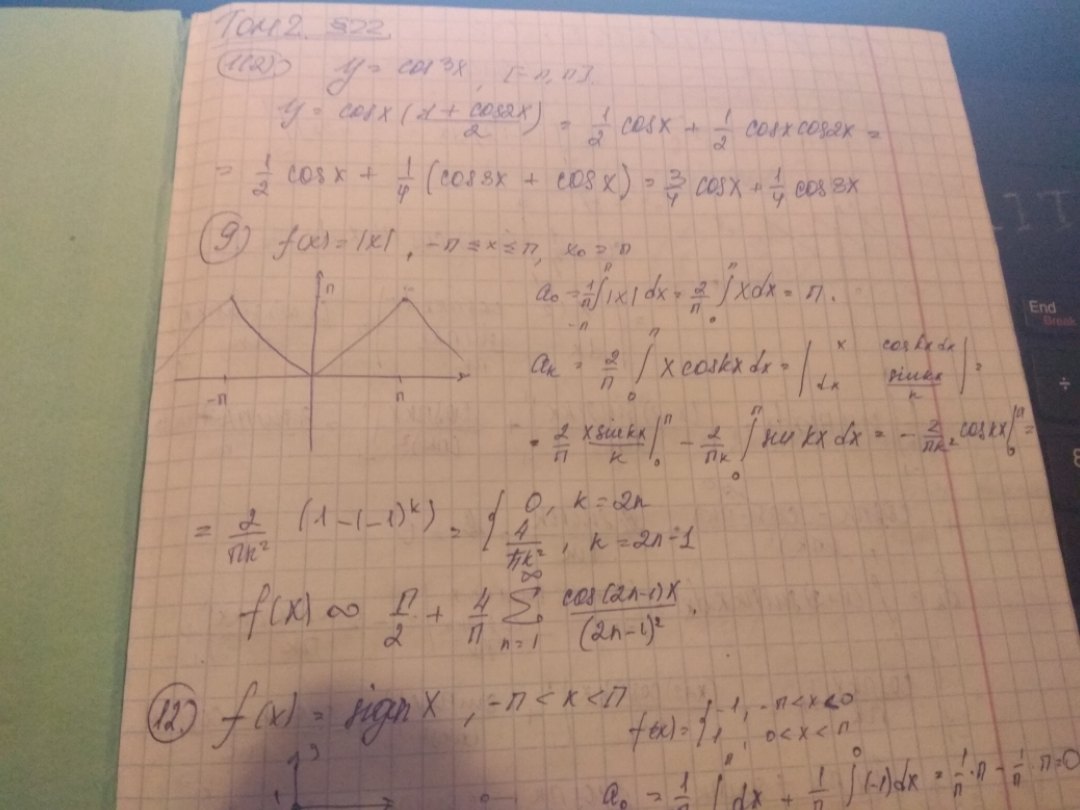 Том 2. §22.
1(2) y = cos³x, [-π, π].
y = cosx (1 + cos2x)/2 = 1/2 cosx + 1/2 cosx cos2x =
= 1/2 cosx + 1/4 (cos3x + cosx) = 3/4 cosx + 1/4 cos3x
9) f(x) = |x|, -π ≤ x ≤ π, x₀ = π
π
-π π
a₀ = 1/π ∫_{-π}^{π} |x| dx = 2/π ∫_0^π x dx = π.
aₖ = 2/π ∫_0^π x coskx dx = | x coskx dx
dx sinkx/k | =
= 2/π xsinkx/k |_0^π - 2/πk ∫_0^π sin kx dx = - 2/πk² coskx |_0^π =
= 2/πk² (1-(-1)^k) = { 0, k = 2n
4/πk², k = 2n-1
f(x) ∞ π/2 + 4/π ∑_{n=1}^∞ cos(2n-1)x/(2n-1)².
12) f(x) = sign x, -π < x < π
f(x) = { -1, -π < x < 0
1, 0 < x < π
a₀ = 1/π ∫^π dx + 1/π ∫^0 (-1)dx = 1/π · π - 1/π · π = 0
End
Break
÷
8